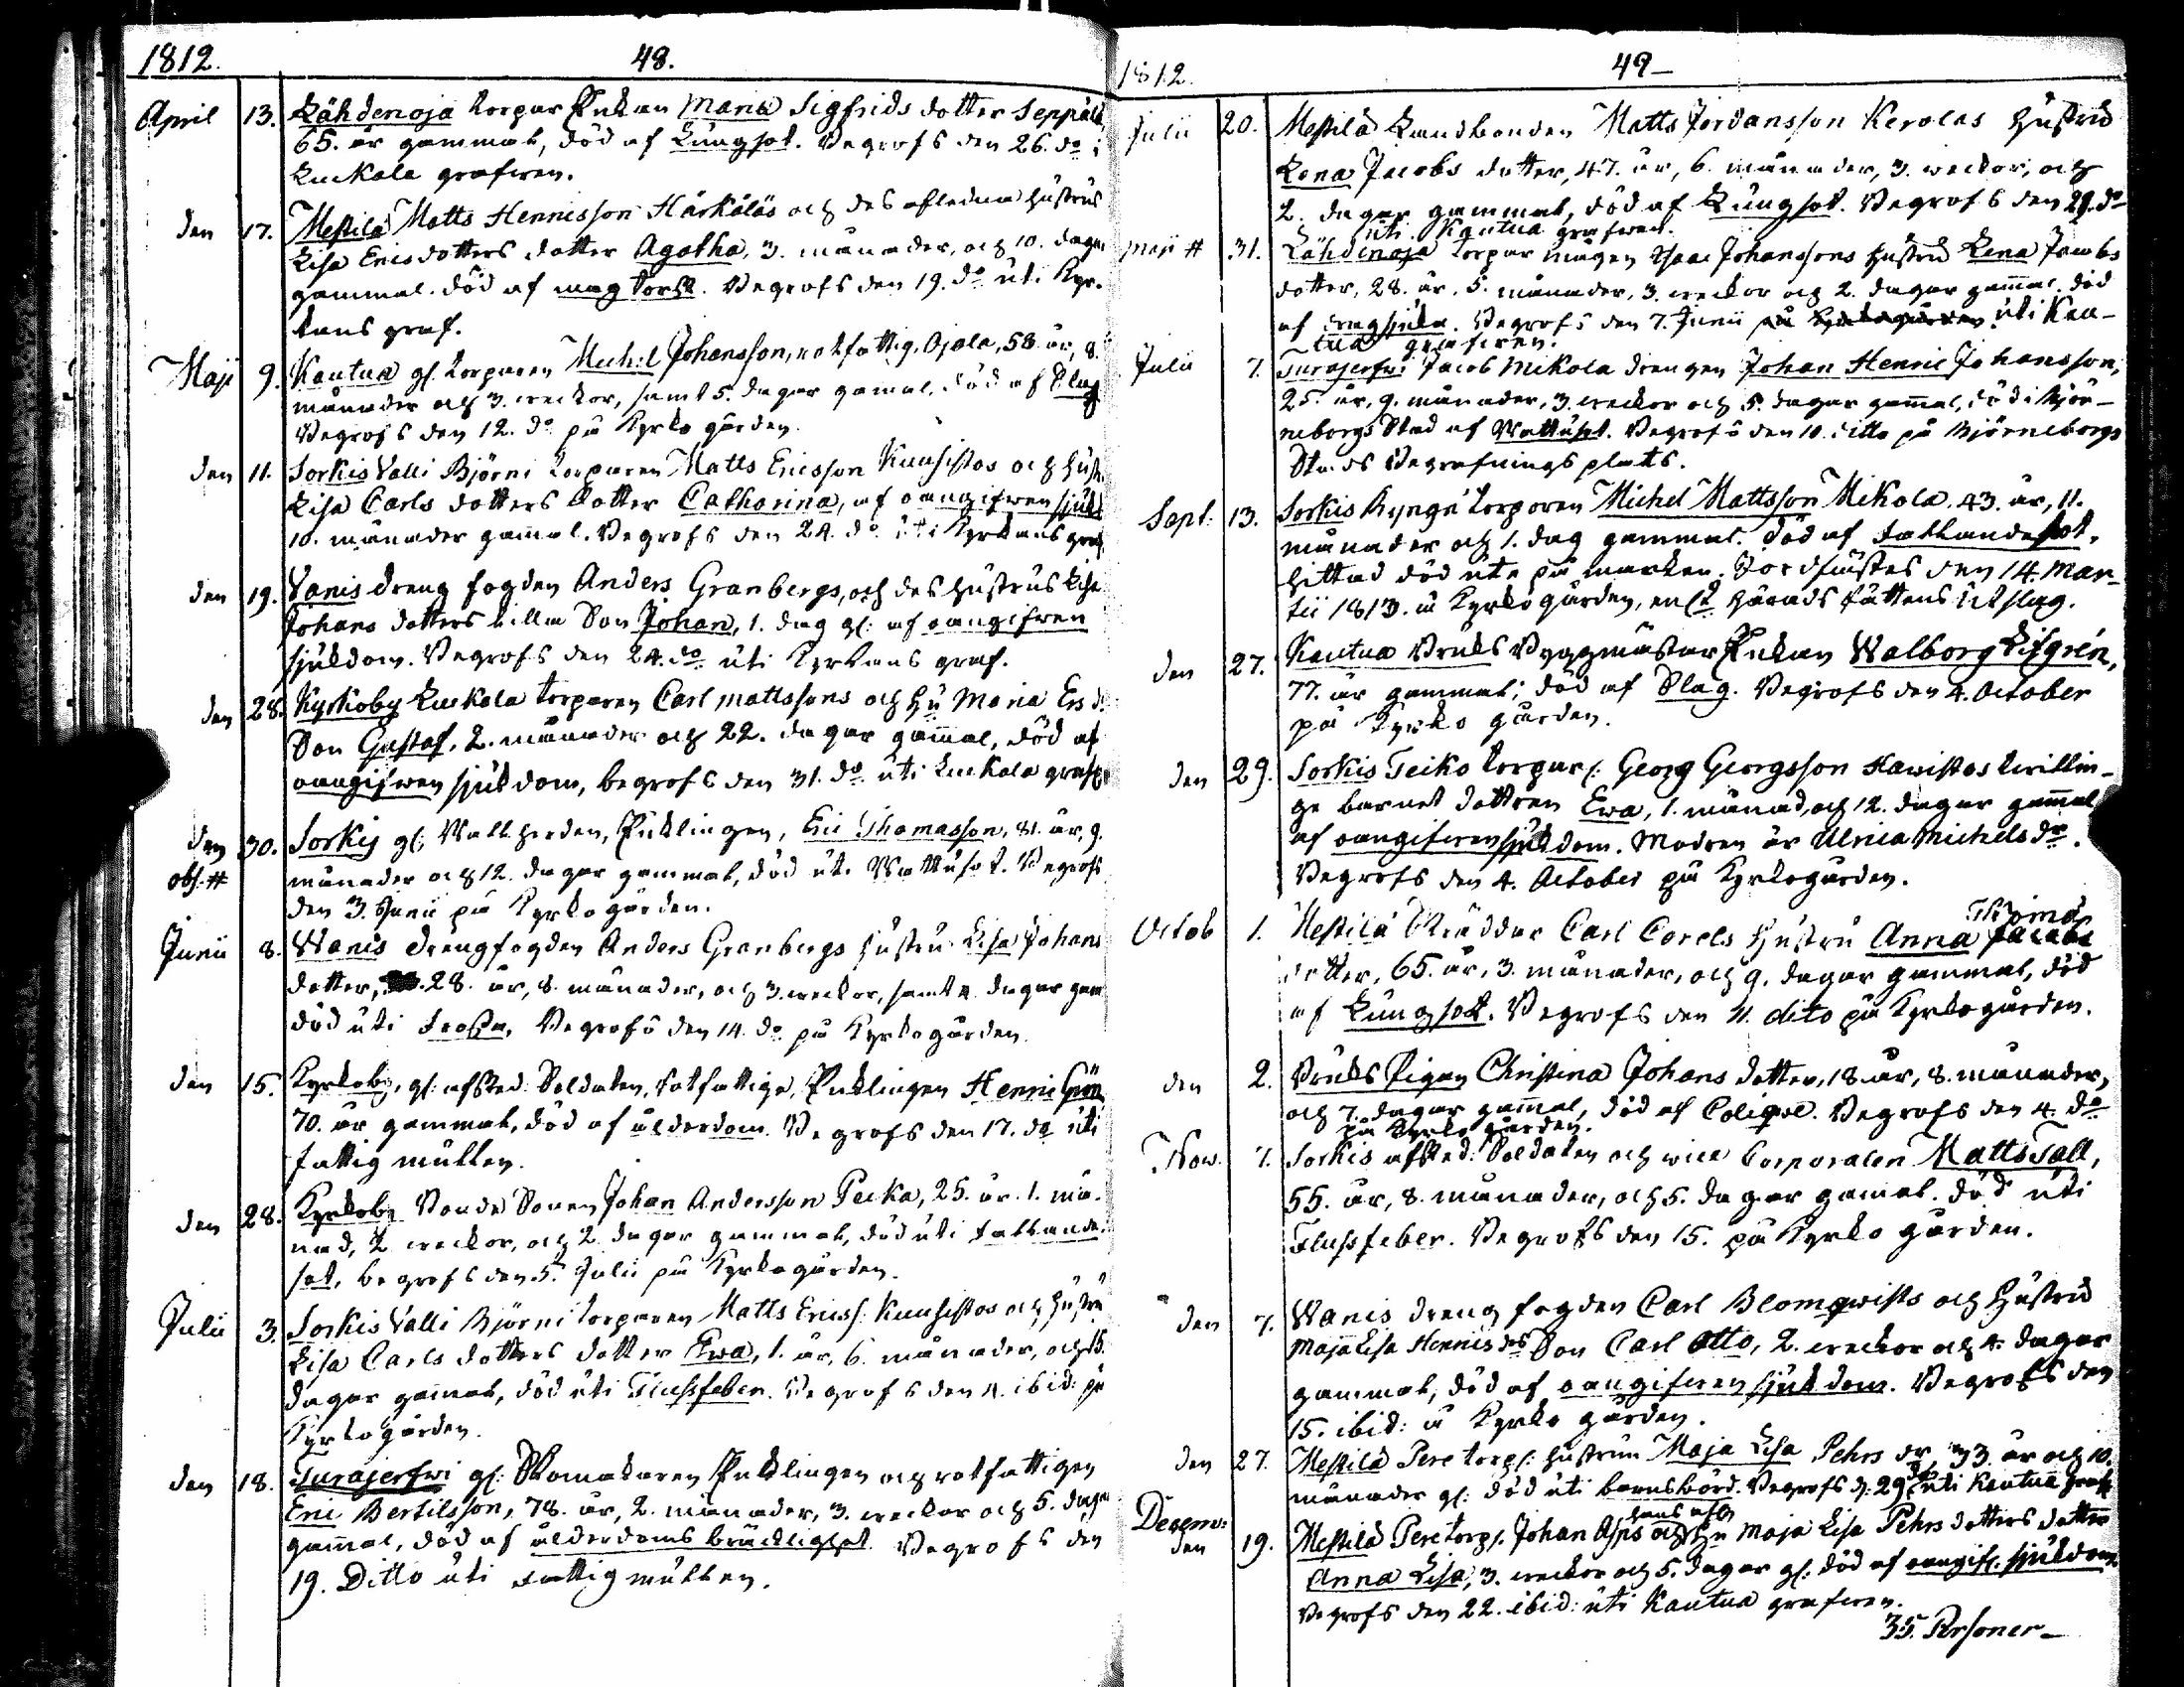 1812. 48.
April 13. Lähdenoja torpar Enkan Maria Sigfrids dotter Seppälä
65. år gammal, död af Lungsot. Begrofs den 26. do i
Luckala grafwen.
den 17. Mestilä Matts Henricsson Härkäläs och des afledna hustrus
Lisa Ericsdotters dotter Agatha, 3. månader, och 10. dagar
gammal. död af magtorsk. Begrofs den 19. do uti Kyr-
kans graf.
Maji 9. Kautua gl. torparen Michel Johansson, rotfattig, Ojala, 58 år, 8.
månader och 3. weckor, samt 5. dagar gamal. död af Slag
Begrofs den 12. do på Kyrko gården.
den 11. Sorkis Valli Björni torparen Matts Ericsson Kuusistos och hust.
Lisa Carls dotters dotter Catharina, af oangifwen sjukd
10. månader gamal. Begrofs den 24. do uti Kyrkans graf.
den 19. Vanis dreng fogden Anders Granbergs, och des hustrus Lisa
Johans dotters lilla Son Johan, 1. dag gl: af oangifwen
sjukdom. Begrofs den 24. do uti Kyrkans graf.
den 28. Kyrkoby Luckala torparen Carl Mattssons och hu Maria Ers d.
Son Gustaf, 2. månader och 22. dagar gamal, död af
oangifwen sjukdom, begrofs den 31. do uti Luckala grafw
den 30. Sorkis gl: Vallherden, Enklingen, Eric Thomasson, 81. år, 9.
obs. # månader och 12. dagar gammal, död uti Wattusot. Begrofs
den 3. Junii på Kyrkogården.
Junii 8. Wanis drengfogden Anders Granbergs hustru Lisa Johans
dotter, 28. år, 8. månader, och 3. weckor, samt 4. dagar gam
död uti Frossa, Begrofs den 14. do på Kyrkogården.
den 15. Kyrkoby, gl: afsked: Soldaten, rotfattige, Enklingen Henric Grön
70. år gammal, död af ålderdom. Begrofs den 17. do uti
fattig mullen.
den 28. Kyrkoby Bonde Sonen Johan Andersson Pecka, 25. år. 1. må-
nad, 2 weckor, och 2 dagar gammal, död uti fallande-
sot, begrofs den 5. Julii på Kyrkogården.
Julii 3. Sorkis Valli Björni torparen Matts Ericss: Kuusistos och hustru
Lisa Carls dotters dotter Ewa, 1. år, 6. månader, och 15.
dagar gamal, död uti Flussfeber. Begrofs den 4. ibid: på
Kyrkogården.
den 18. Turajerfwi gl: Skomakaren Enklingen och rotfattigen
Eric Bertilsson, 78. år, 2. månader, 3. weckor och 5. dagar
gamal, död af ålderdoms bräcklighet. Begrofs den
19. Ditto uti fattigmullen.
1812. 49
Julii 20. Mestilä Landbonden Matts Jordansson Kerolas hustru
Lena Jacobs dotter, 47. år, 6. månader, 3. weckor, och
2. dagar gammal, död af Lungsot. Begrofs den 29. do
uti Kautua grafwen.
Maji # 31. Lähdenoja torpar mågen Isaac Johanssons hustru Lena Jacobs
dotter, 28. år. 5. månader, 3. weckor och 2. dagar gamal. död
af dragsjuka. Begrofs den 7. Junii på Kyrkogården uti Kau-
tua grafwen.
Julii 7. Turajerfwi Jacob Mikola drengen Johan Henric Johansson,
25. år, 9. månader, 3. weckor och 5. dagar gamal, död i Björ-
neborgs Stad af Wattusot. Begrofs den 10. ditto på Björneborgs
Stads Begrafnings plats.
Sept: 13. Sorkis Rynge torparen Michel Mattsson Mikola. 43. år, 11.
månader och 1. dag gammal. död af fallandesot,
hittad död ute på marken. Jordfästes den 14. Mar-
tii 1813. å Kyrkogården, enl. härads rättens utslag.
den 27. Kautua Bruks Byggmästar Enkan Walborg Löfgrén,
77. år gammal; död af Slag. Begrofs den 4. October
på Kyrko gården.
den 29. Sorkis Teiko torpar: Georg Georgsson Hawistos twillin-
ge barnet dottren Ewa, 1. månad, och 12. dagar gamal
af oangifwen sjukdom. Modren är Ulrica Michels dr.
Begrofs den 4. October på Kyrkogården.
Octob 1. Mestilä Skräddar Carl Corels hustru Anna Thoma Jacobs
dotter, 65. år, 3. månader, och 9. dagar gammal, död
af Lungsot. Begrofs den 11. dito på Kyrkogården.
den 2. Bruks Pigan Christina Johans dotter, 18. år, 8. månader,
och 7. dagar gamal, död af Colique. Begrofs den 4. do
på Kyrko gården.
Now. 7. Sorkis afsked: Soldaten och wice Corporalen Matts Tall,
55. år, 8. månader, och 5. dagar gamal. död uti
Flussfeber. Begrofs den 15. på Kyrko gården.
den 7. Wanis dreng fogden Carl Blomqwists och hustru
Maja Lisa Henrics drs Son Carl Otto, 2. weckor och 4. dagar
gammal, död af oangifwen sjukdom. Begrofs den
15. ibid: å Kyrko gården.
den 27. Mestilä Pere torp: hustrun Maja Lisa Pehrs dr, 33. år och 10.
månader gl: död uti barnsbörd. Begrofs d: 29 do uti Kautua graf
Decemr:
den 19. Mestilä Pere torp. Johan hans afl: hu Maja Lisa Pehrs dotters dotter
Anna Lisa, 3. weckor och 5. dagar gl: död af oangif: sjukdom.
Begrofs den 22. ibid: uti Kautua grafwen.
35. Personer